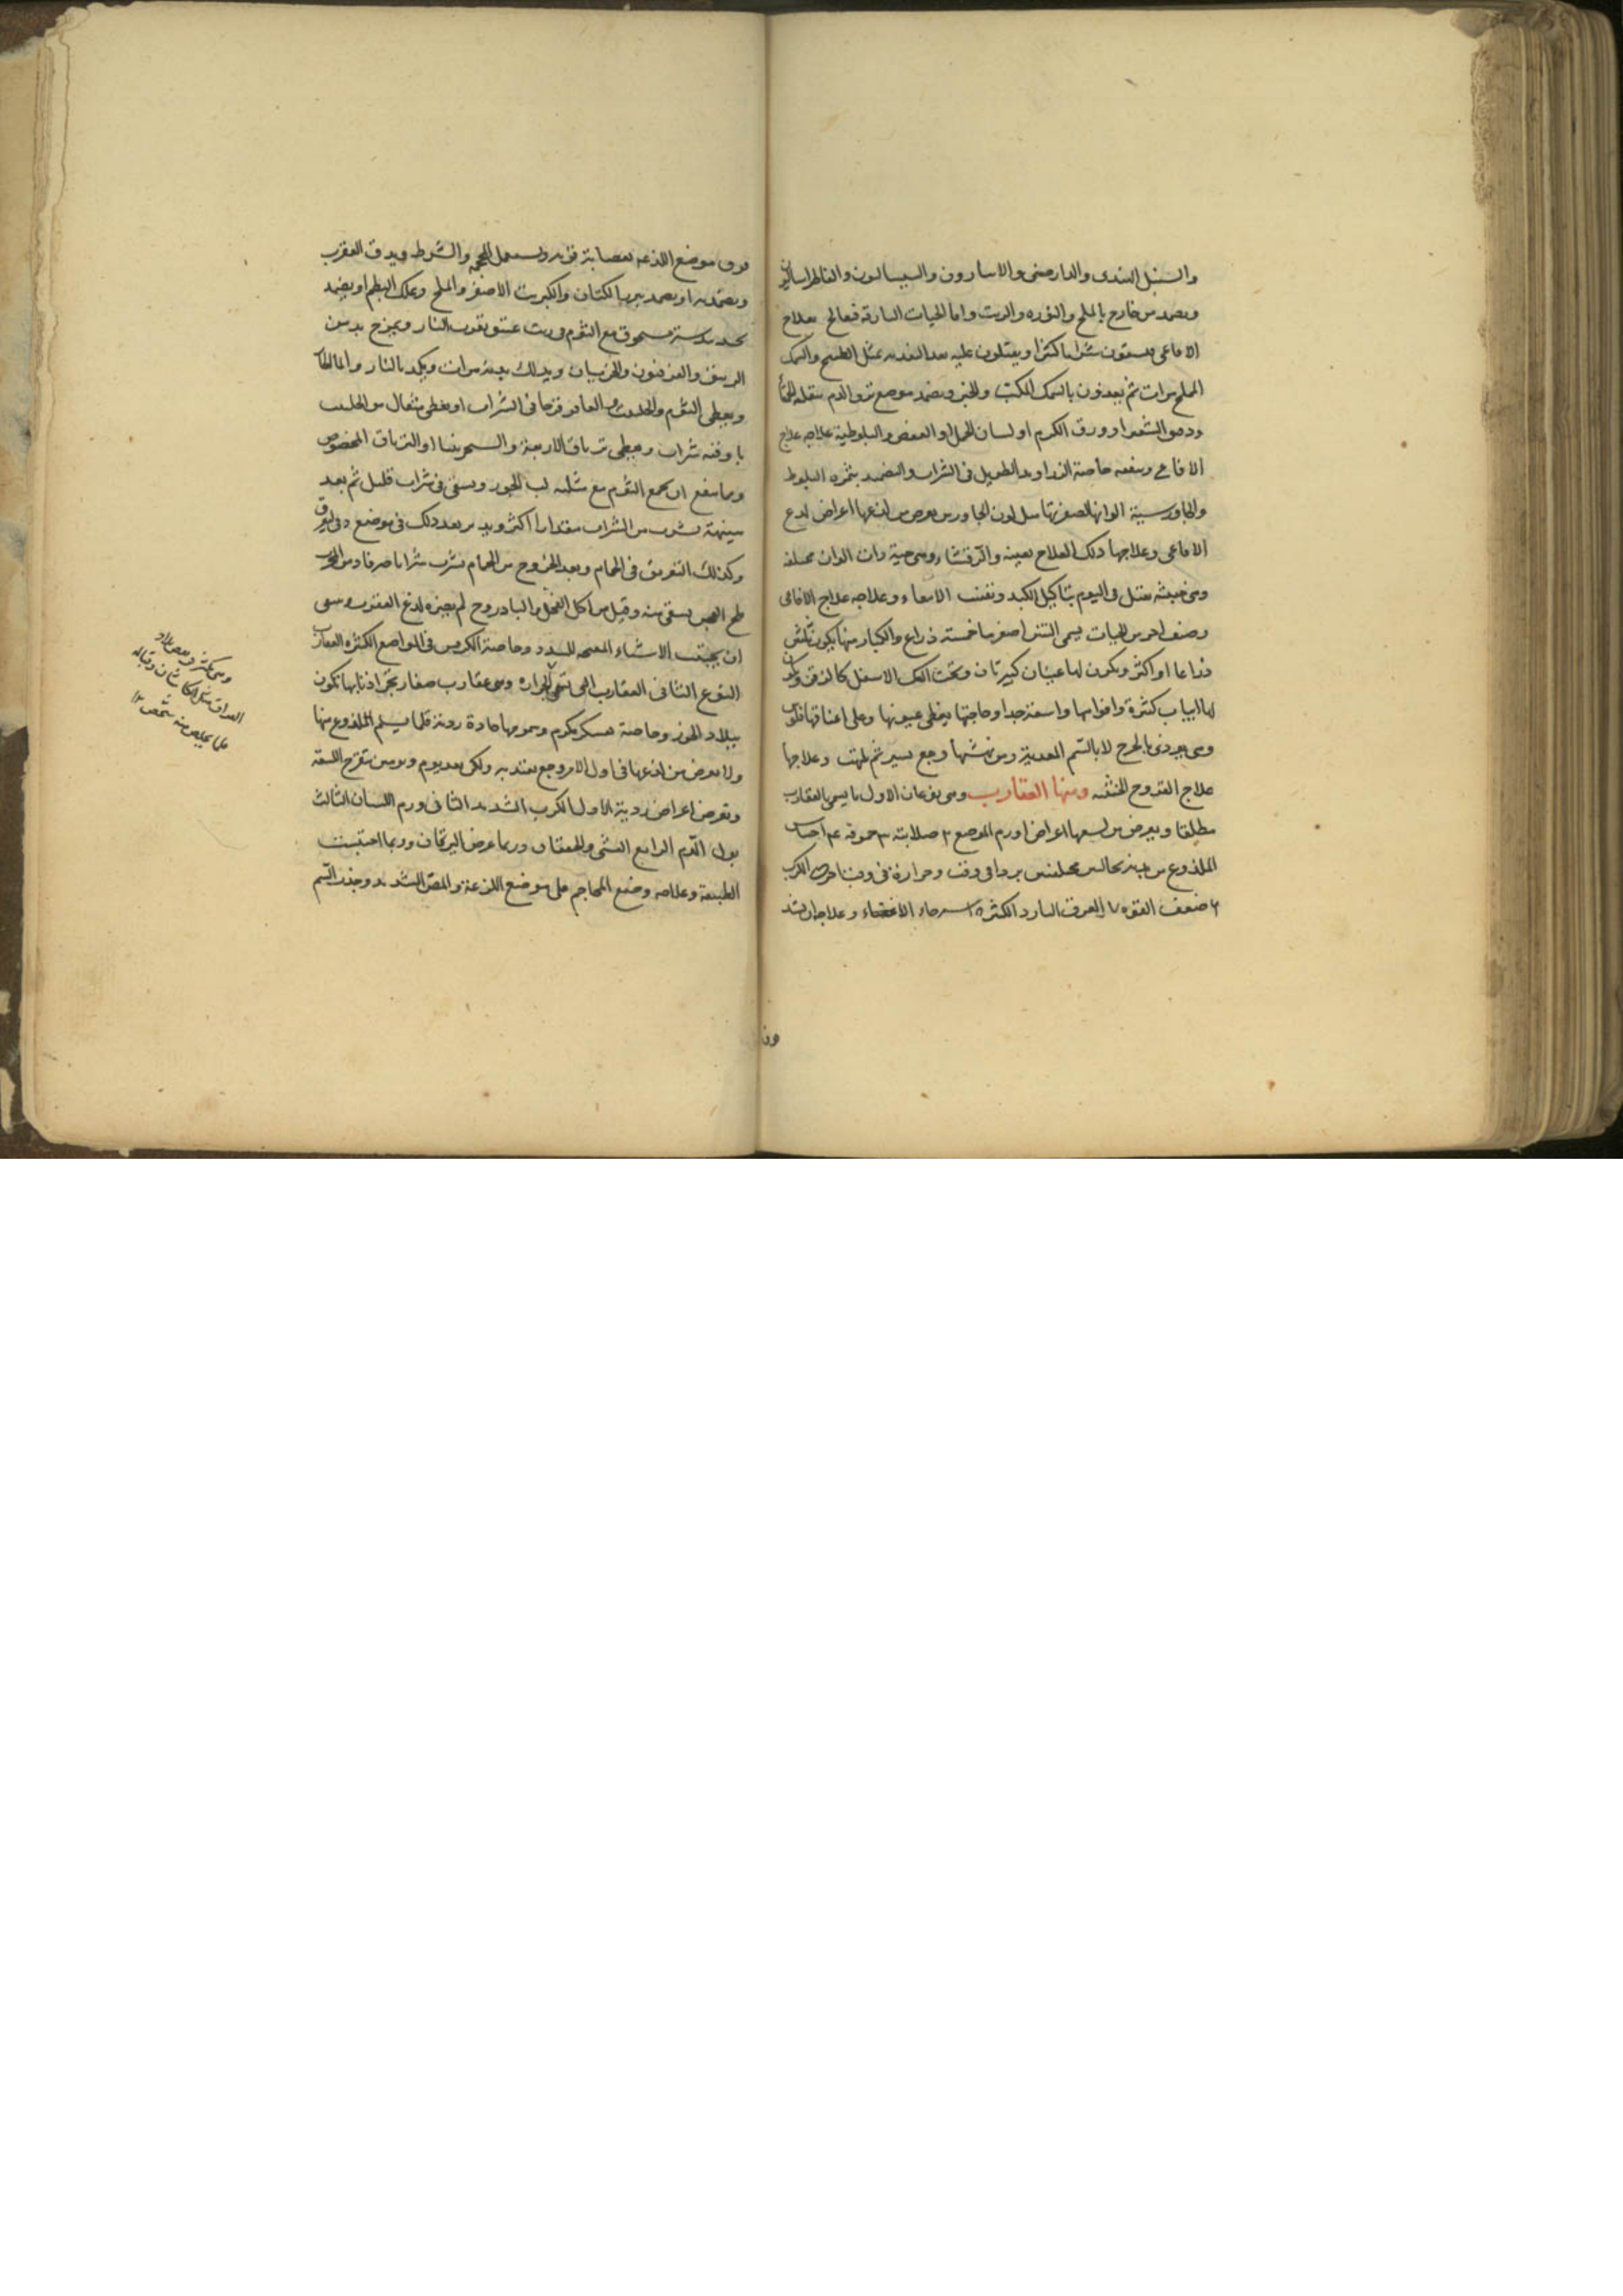 والسنبل الهندى والدارصينى والاسارون والسيساليون
ويضمد من خارج بالملح والنوره والزيت واما الحيات البارقه فيعالج بعلاج
الافاعى يسقون شرابا كثيرا ويقيئون عليه بعد التغذيه بمثل الطريح والسمك
المالح مرات ثم يغذون بالسمك والخبز ويضمد موضع نزف الدم ببقلة الحمقا
ودقيق الشعير او ورق الكرم او لسان الحمل او العفص والبلوطية علاجه علاج
الافاعى وينفعه خاصة الزراوند الطويل فى الشراب والتضميد بثمرة البلوط
والجاورسية الوانها لصفرتها مثل لون الجاورس يعرض من لدغها اعراض لدغ
الافاعى وعلاجها ذلك العلاج بعينه والرقشاء وهى حية ذات الوان مختلفه
وهى خبيثه تقتل فى اليوم بتأكيل الكبد وتفتت الامعاء وعلاجه علاج الافاعى
وصنف اخر من الحيات يسمى التنين اصغرها خمسة ذراع والكبار منها يكون ثلثين
ذراعا او اكثر ويكون لها عينان كبيرتان وتحت الفك الاسفل كالذقن ويكون
لها انياب كثيرة وافواهها واسعة جدا وحاجبها يغطى عيونها وعلى اعناقها فلوس
وهى يوذى بالجرح لا بالسم المعديه ومن نهشها وجع يسير ثم يلتهب وعلاجها
علاج القروح الخبيثه ومنها العقارب وهى نوعان الاول ما يسمى العقارب
مطلقا ويعرض من لسعها اعراض ا ورم الموضع ٢ صلابته ٣ حمرته ٤ احساس
الملدوغ من حينه بحالتين مختلفتين بردا فى وقت وحرارة فى وقت اخر ٥ الكرب
٦ ضعف القوه ٧ العرق البارد الكثير ٨ استرخاء الاعضاء وعلاجه ان يشد
فوق موضع اللدغه بعصابة قويه ويستعمل المحجمه والشرط ويدق العقرب
ويضمد به او يضمد ببزر الكتان والكبريت الاصفر والملح وعلك البطم او يضمد
بجندبيدسترة مسحوق مع الثوم وزيت عتيق بقرب النار ويمزج بدهن
الزيبق والفرفيون والخربيان ويدلك بدنه مرات ويكمد بالنار
ويعطى الثوم والحلتيت والعاقر قرحا فى الشراب او يعطى مثقال من الحلتيت
باوقيه شراب ويعطى ترياق الاربعة والسجزينيا او الترياق المخصوص
ومما ينفع ان يجمع الثوم مع مثليه لب الجوز ويسقى فى شراب قليل ثم بعد
سينهة يشرب من الشراب مقدارا اكثر ويدثر بعد ذلك فى موضع دفى ليعرق
وكذلك التعريق فى الحمام وبعد الخروج من الحمام يشرب شرابا صرفا ومن المجرب
طبخ يسقى منه وقيل من اكل الفجل والبادروج لم يضره لدغ العقرب وينبغى
ان يجتنب الاشياء المفتحه للسدد وخاصة الكرفس فى المواضع الكثيره العقارب
النوع الثانى العقارب التى تسمى الجراره وهى عقارب صغار تجر اذنابها تكون
ببلاد الخوز وخاصة عسكر مكرم وسمومها حادة رديئة قلما يسلم الملدوغ منها
ولا يعرض من لدغها فى اول الامر وجع يعتد به ولكن بعد يوم ويومين يتقرح اللسعه
وتعرض اعراض رديئة الاول الكرب الشديد الثانى ورم اللسان الثالث
بول الدم الرابع الغشى والخفقان وربما عرض اليرقان وربما احتبست
الطبيعة وعلاجه وضع المحاجم على موضع اللدغة والمص الشديد وجذب السم
وهى يكثر فى بعض بلاد
العراق مثل الكاشان وقباله
قلما يخلص منه شخص ١٢